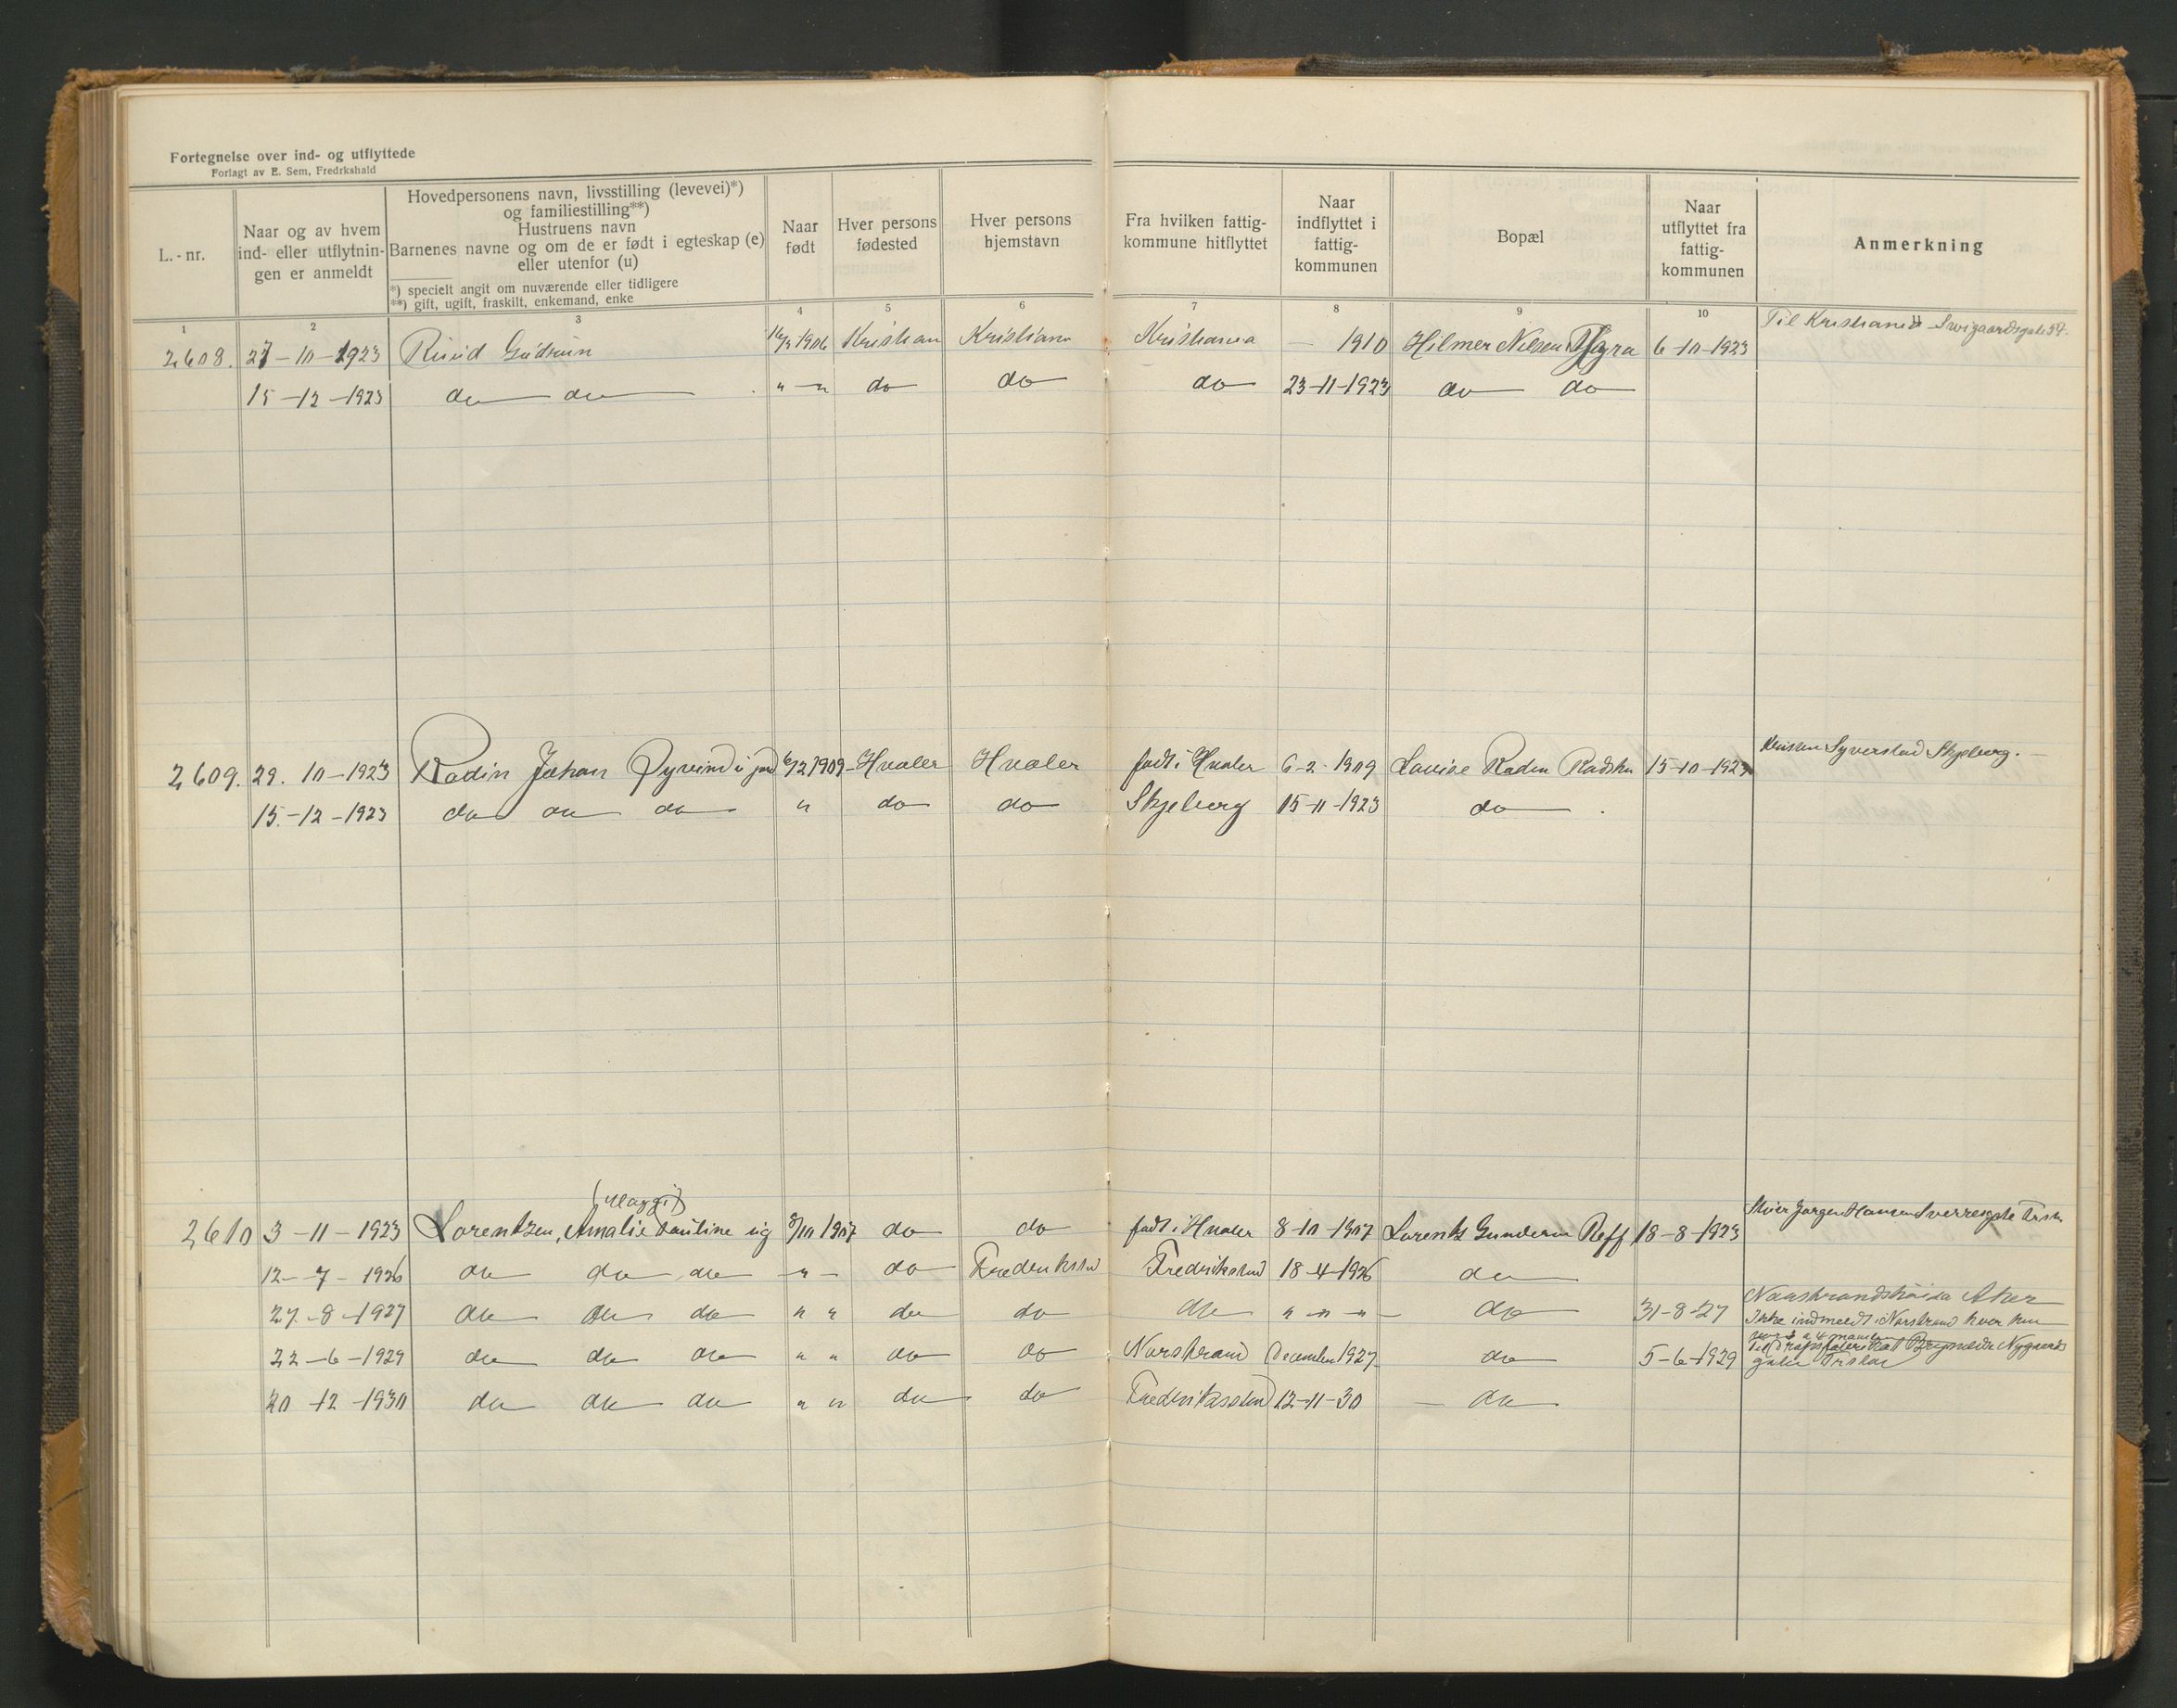 Fortegnelse over ind- og utflyttede
Forlagt av E. Sem, Fredrkshald
L.-nr.
Naar og av hvem
ind- eller utflytnin-
gen er anmeldt
Hovedpersonens navn, livsstilling (levevei)*)
og familiestilling**)
Hustruens navn
Barnenes navne og om de er født i egteskap (e)
eller utenfor (u)
*) specielt angit om nuværende eller tidligere
**) gift, ugift, fraskilt, enkemand, enke
Naar
født
Hver persons
fødested
Hver persons
hjemstavn
Fra hvilken fattig-
kommune hitflyttet
Naar
indflyttet i
fattig-
kommunen
Bopæl
Naar
utflyttet fra
fattig-
kommunen
Anmerkning
1 2 3 4 5 6 7 8 9 10
Til Kristiania
2608. 27-10-1923 Ruud Gudrun 1906 Kristian Kristiana Kristiania — 1910 Hilmer Nilsen 6-10-1923
15-12-1923 do do " " do do do 23-11-1923 do do
Skjeberg.
2609. 29. 10-1923 Radin Johan Øyvind 6/2 1909 Hvaler Hvaler født i Hvaler 6-2-1909 Lovise Radin 15-10-1923
15.-12-1923 do do do " do do Skjeberg 15-11-1923 do
2610 3-11-1923 Lorentzen, Amalie Pauline ug 8/10 1907 do do født i Hvaler 8-10-1907 Lorentz Gundersen Reff 18-8-1923
12-7-1926 do do do " do Fredrikstad Fredrikstad 18-4-1926 do
27-8-1927 do do do " " do do do " " " do 31-8-27 Aker
Ikke indmeldt i Norstrand hvor hun
22-6-1929 do do do " " do do Norstrand December 1927 do 5-6-1929
20-12-1930 do do do " " do do Fredriksstad 12-11-30 do